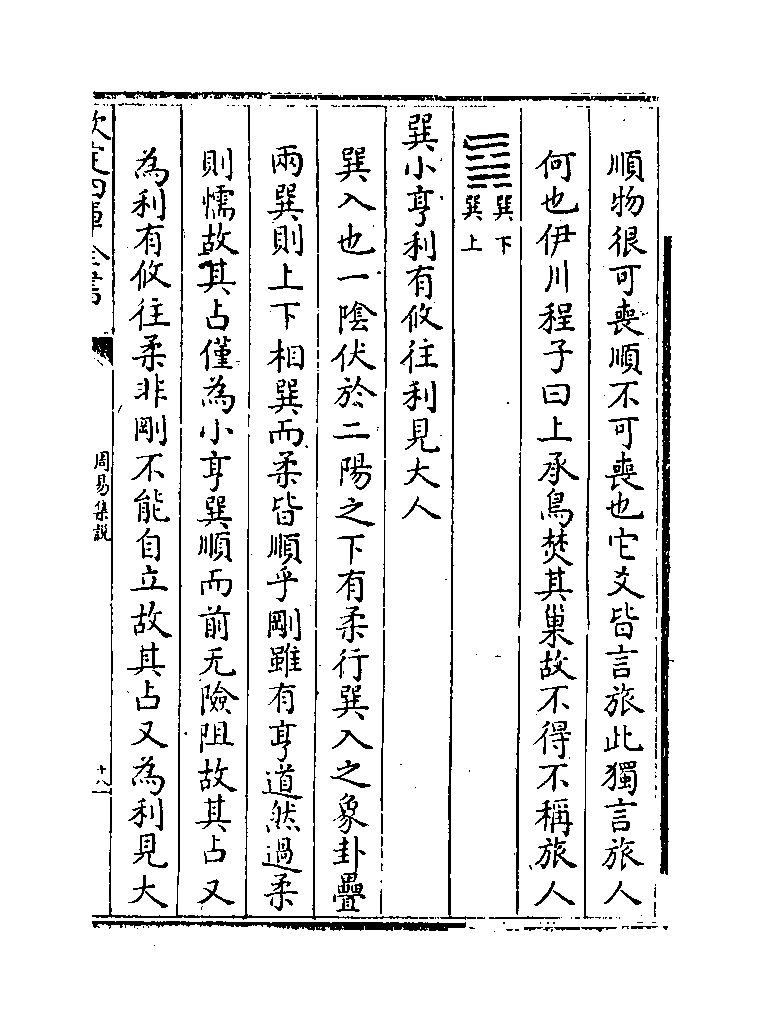 順物很可喪順不可喪也它爻皆言旅此獨言旅人
何也伊川程子曰上承鳥焚其巢故不得不稱旅人
䷸巽下
巽上
巽小亨利有攸往利見大人
巽入也一陰伏於二陽之下有柔行巽入之象卦疊
兩巽則上下相巽而柔皆順乎剛雖有亨道然過柔
則懦故其占僅為小亨巽順而前无險阻故其占又
為利有攸往柔非剛不能自立故其占又為利見大
欽定四庫全書
周易集說
十八